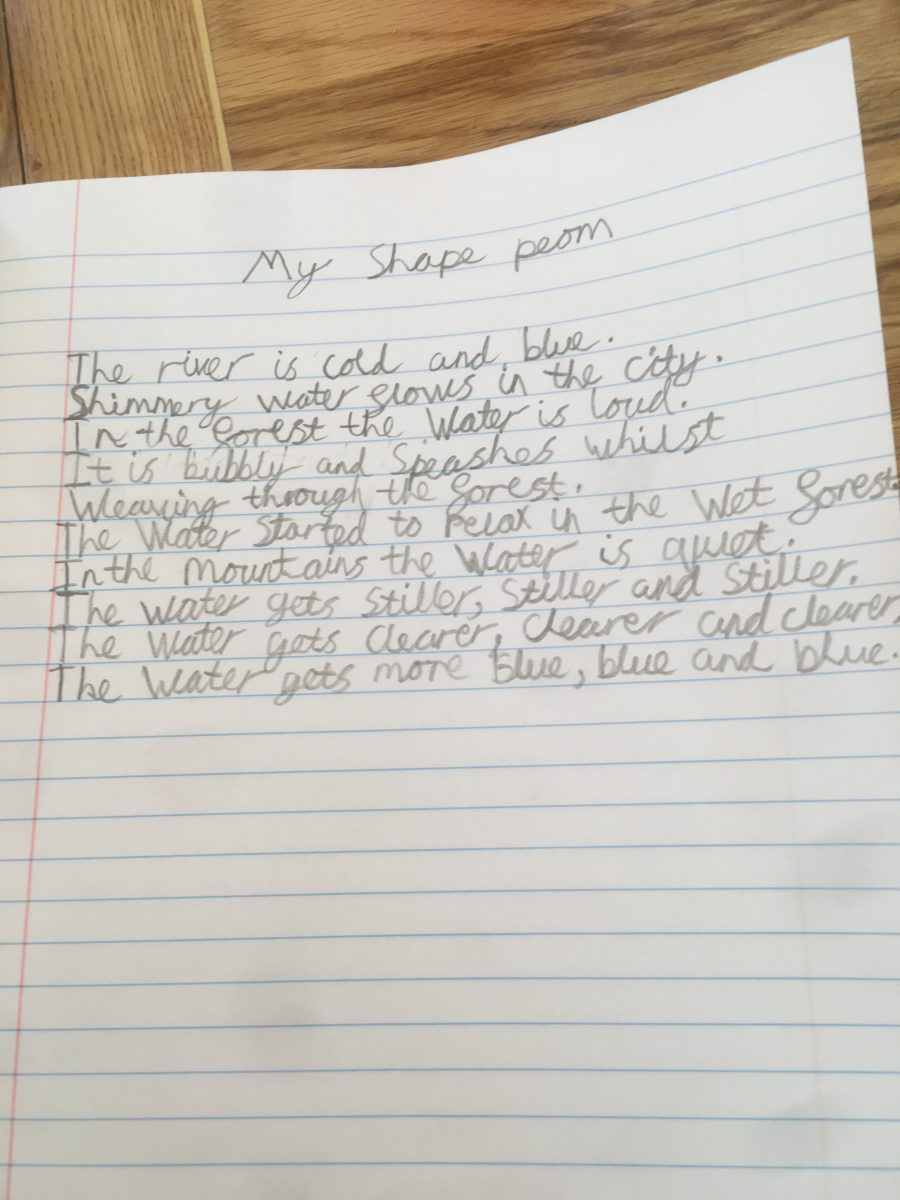 My Shape peom
The river is cold and blue.
Shimmery water flows in the city.
In the forest the Water is loud.
It is bubbly and Speashes whilst
Weaving through the forest.
The Water Started to relax in the Wet forest.
In the mountains the Water is quiet.
The water gets stiller, stiller and stiller.
The Water gets clearer, clearer and clearer.
The Water gets more blue, blue and blue.